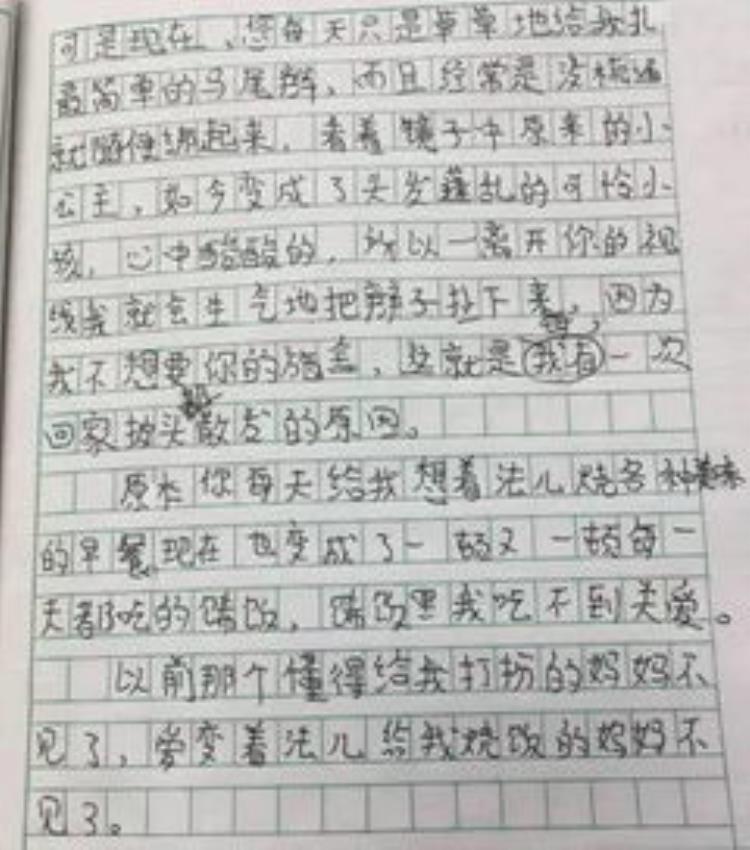 可是现在、您每天只是草草地给我扎
最简单的马尾辫、而且经常是没梳通
就随便绑起来。看着镜子中原来的小
公主，如今变成了头发蓬乱的可怜小
孩，心中酸酸的，所以一离开你的视
线我就会生气地把辫子扯下来，因为
我不想要你的施舍，这就是我有一次
回家披头散发的原因。
原本你每天给我想着法儿烧各种美味
的早餐现在也变成了一顿又一顿每一
天都吃的馄饨，馄饨里我吃不到关爱。
以前那个懂得给我打扮的妈妈不
见了，爱变着法儿给我烧饭的妈妈不
见了。